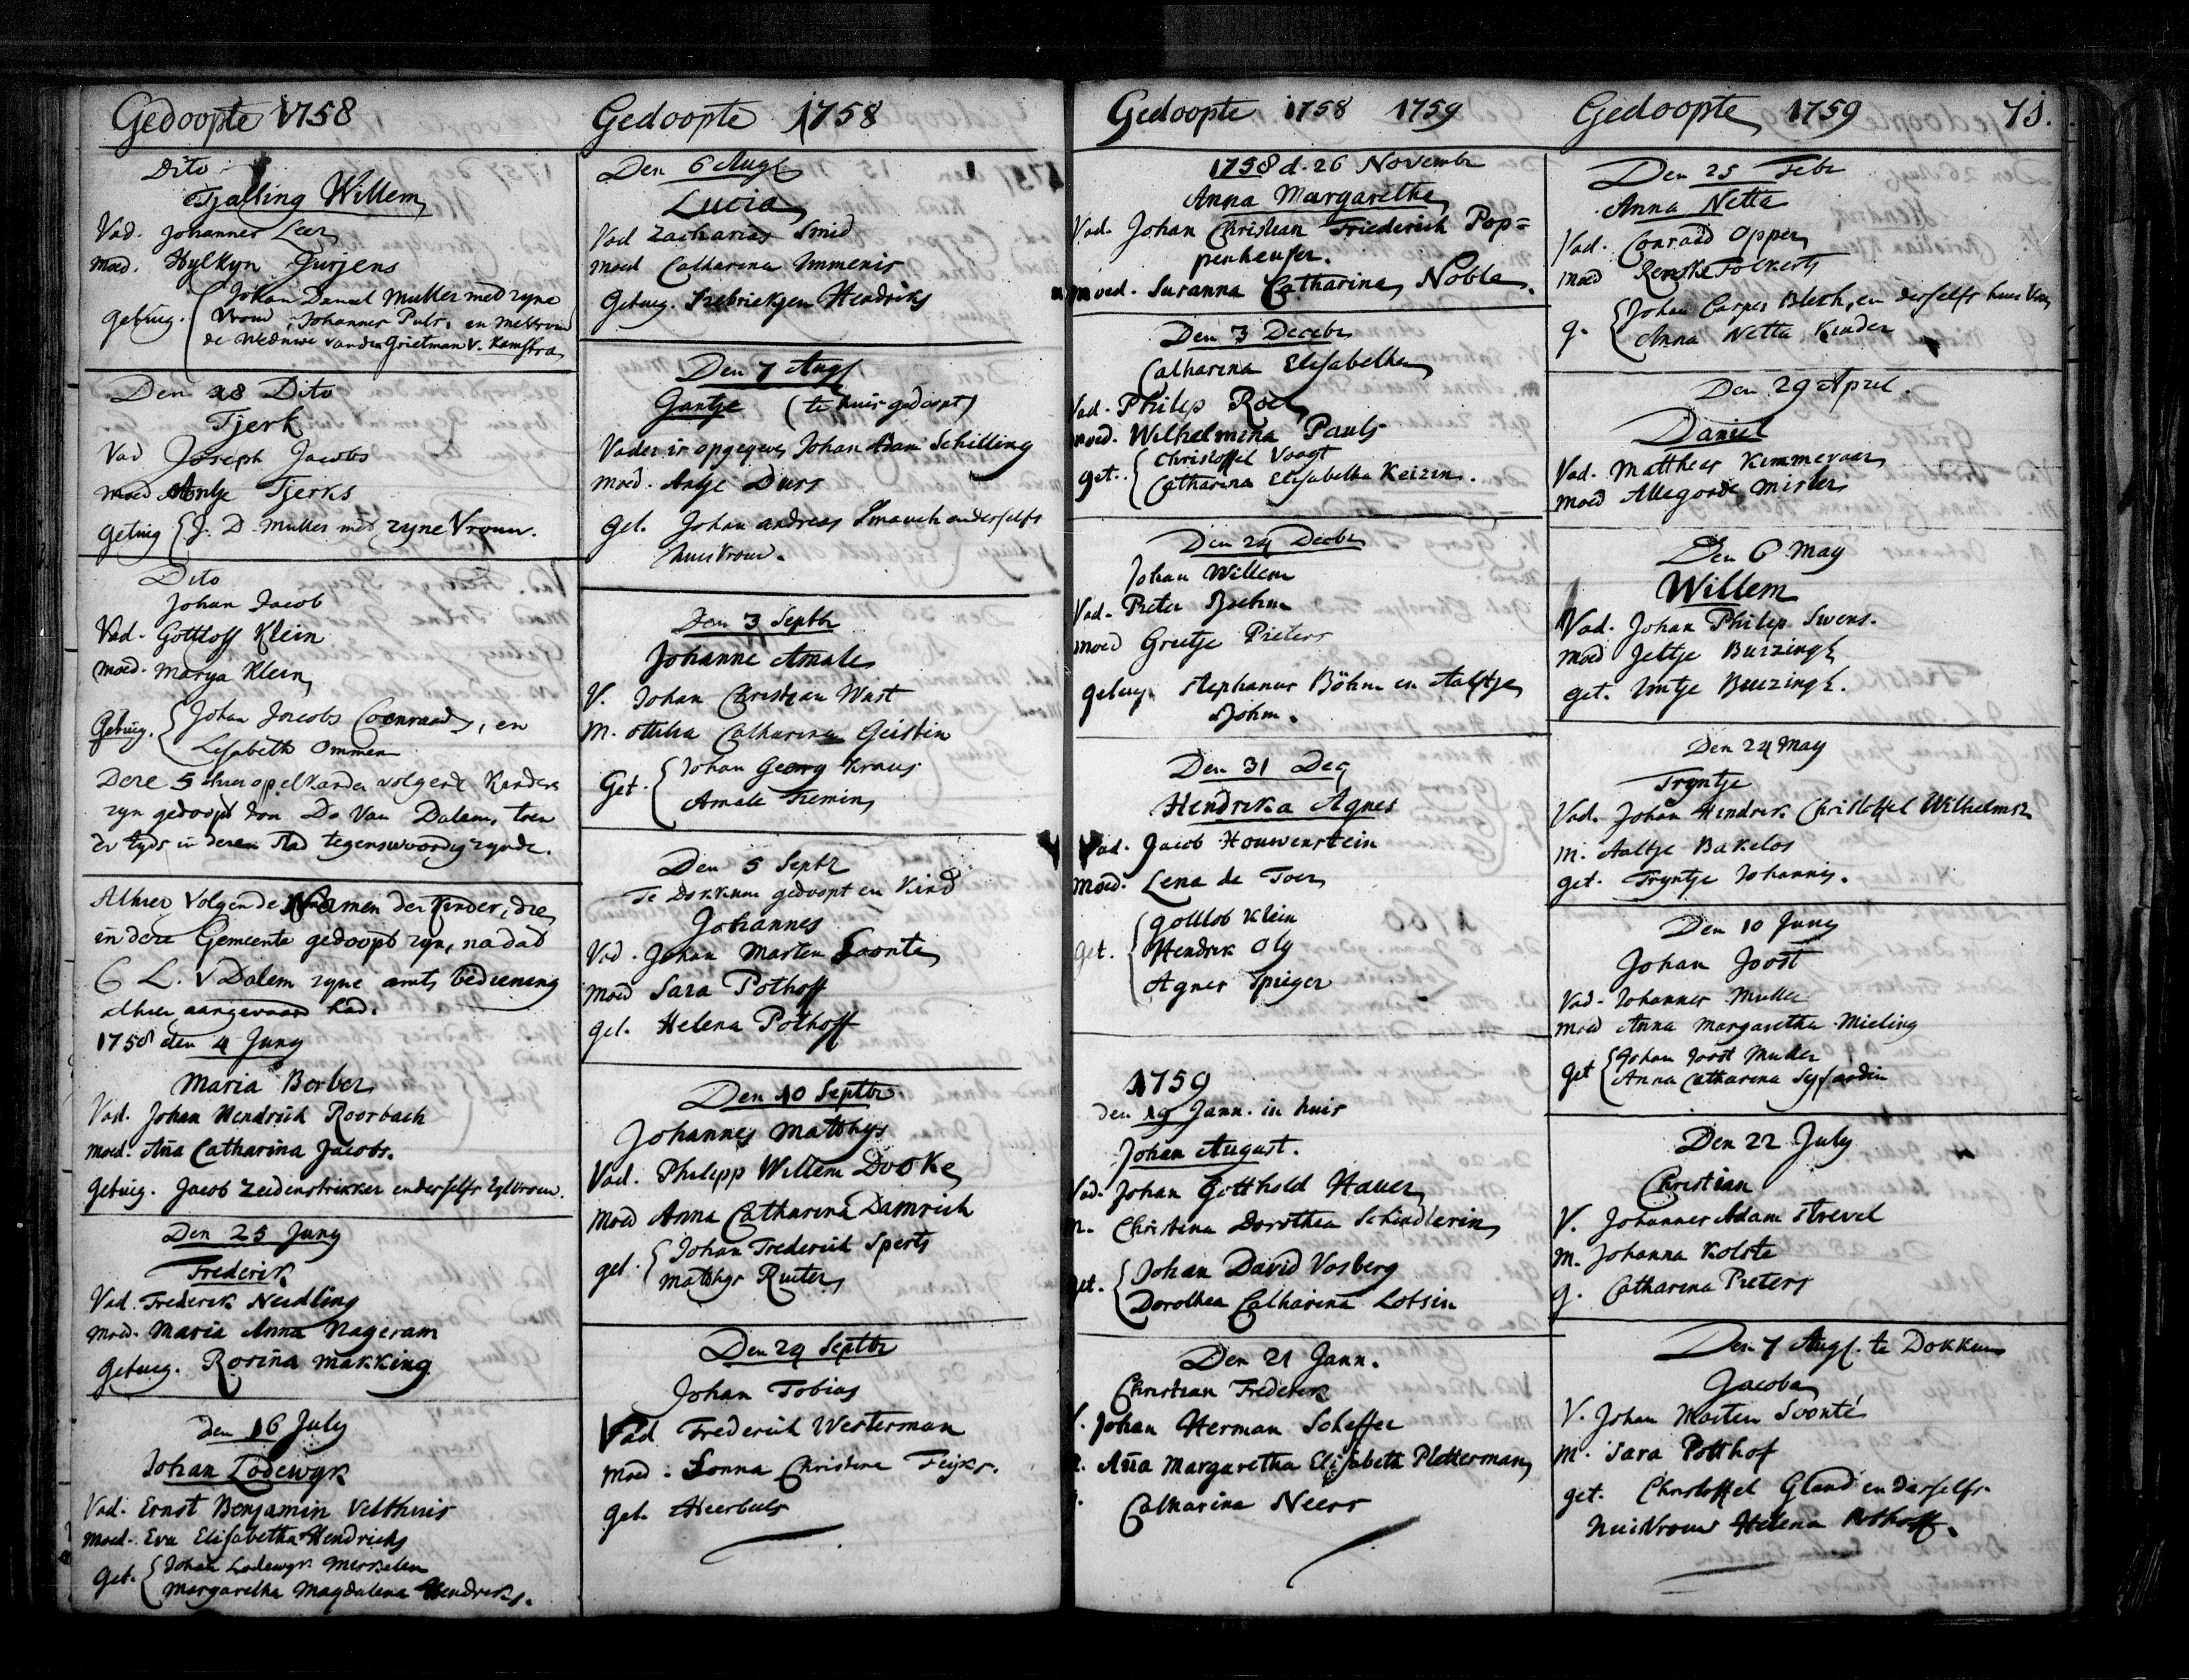 Gedoopte 1758
Dito
Tjalling Willem
Vad. Johannes Leer
Moed. Hylkyn Jurjens
getuig. Johan Daniel Muller med zyne
Vrouw, Johannes Puls, en Mevrouw
de Weduwe van den Grietman V. Kamstra
Den 28 Dito
Tjerk
Vad Joseph Jacobs
moed Antje Tjerks
getuig J. D. Muller med zyne Vrouw.
Dito
Johan Jacob
Vad. Gottloff Klein
moed. Marya Klein
Getuig. Johan Jacobs Coenraad, en
Lisabeth Ommen
Deze 5 hier op elkander volgend Kinders
zyn gedoopt door Do Van Dalem, toen
ter tyds in deze Stad tegenswoordig zynde.
Alhier Volgen de Namen der Kinder, die
in deze Gemeente gedoopt zyn, nadat
C L. V Dalem zyne amts bediening
alhier aangevaard had.
1758 den 4 Juny
Maria Berber
Vad. Johan Hendrich Roorbach
moed. Aña Catharina Jacobs.
getuig. Jacob Zeidenstrikker en derselfs Vrouw.
Den 25 Juny
Frederik
Vad. Frederik Neidling
moed. Maria Anna Nageram
getuig. Rosina Makking
den 16 July
Johan Lodewyk
Vad. Ernst Benjamin Velthuis
moed. Eva Elisabetha Hendrichs
get. Johan Lodewyk Merkelen
Margaretha Magdalena Hendriks.
Gedoopte 1758
Den 6 Augs
Lucia
Vad Zacharias Smid
moed Catharina Immenis
getuig. Frebriekjen Hendriks
Den 7 Augs
Gantje (te huis gedoopt)
Vader is opgegeven Johan Adam Schilling
moed. Antje Durs
get. Johan andreas Smauch en derselfs
huisvrouw.
Den 3 Septbr
Johanne Amale
V. Johan Christian Wust
M. Ottilia Catharina Geistin
Get. Johan Georg Kraus
Amale Fremin
Den 5 Septbr
Te Dokkum gedoopt en Kind
Johannes
Vad. Johan Marten Soonte
moed Sara Pothoff
get. Helena Pothoff
Den 10 Septbr.
Johannes Matthys
Vad. Philipp Willem Dooke
moed Anna Catharina Damrich
get. Johan Frederich Sperts
Matthys Ruiter
Den 24 Septbr
Johan Tobias
Vad Frederich Westerman
moed. Sonna Christine Feijks.
get. Heerbuls
Gedoopte 1758 1759
1758 d. 26 Novembr
Anna Margaretha
Vad. Johan Christian Friederich Pop=
penheuser.
moed. Suranna Catharina Noble.
Den 3 Decebr
Catharina Elisabetha
Vad. Philip Roel
moed. Wilhelmina Pauls
get. Christoffel Voogt
Catharina Elisabetha Keizers.
Den 24 Decbr
Johan Willem
Vad. Pieter Bohm
moed Grietje Pieters
getuig. Stephanus Böhm en Aaltje
Bohm.
Den 31 Dec
Hendrika Agnes
Vad. Jacob Houwenstein
moed. Lena de Toer
get. Gottlob Klein
Hendrik Oly
Agnes Spieger
1759
den 19 Jann. in huis
Johan August.
Vad. Johan Gotthold Hauer
m. Christina Dorothea Schindlerin
get. Johan David Vosberg
Dorothea Catharina Lotsin
Den 21 Jann.
Christian Frederik
V. Johan Herman Scheffer
m. Aña Margaretha Elisabeth Pletterman
Catharina Neers
Gedoopte 1759 71.
Den 25 Febr
Anna Netta
Vad. Conraad Opper
moed Renske Folkerts
g. Johan Casper Bleth, en derselfs huis Vrou
Anna Netta Kinder
Den 29 April.
Daniel
Vad. Matthees Kimmenaar
moed Allegonde Misler
Den 6 May
Willem
Vad. Johan Philip Swens.
moed Jeltje Buizingh
get. Imtje Buizingh.
Den 24 May
Tryntje
Vad. Johan Hendrik Christoffel Wilhelmsz
M. Aaltje Bakelos
get. Tryntje Johannis.
Den 10 Juny
Johan Joost
Vad. Johannes Muller
moed Anna Margaretha Mieling
get Johan Joost Muller
Anna Catharina Seyfardin
Den 22 July
Christian
V. Johannes Adam Strevel
M. Johanna Kolste
g. Catharina Pieters
Den 7 Augs. te Dokkum
Jacoba
V. Johan Marten Soonté
M. Sara Potthof
get. Christoffel Gland en derselfs
huisvrouw Helena Pothoff.